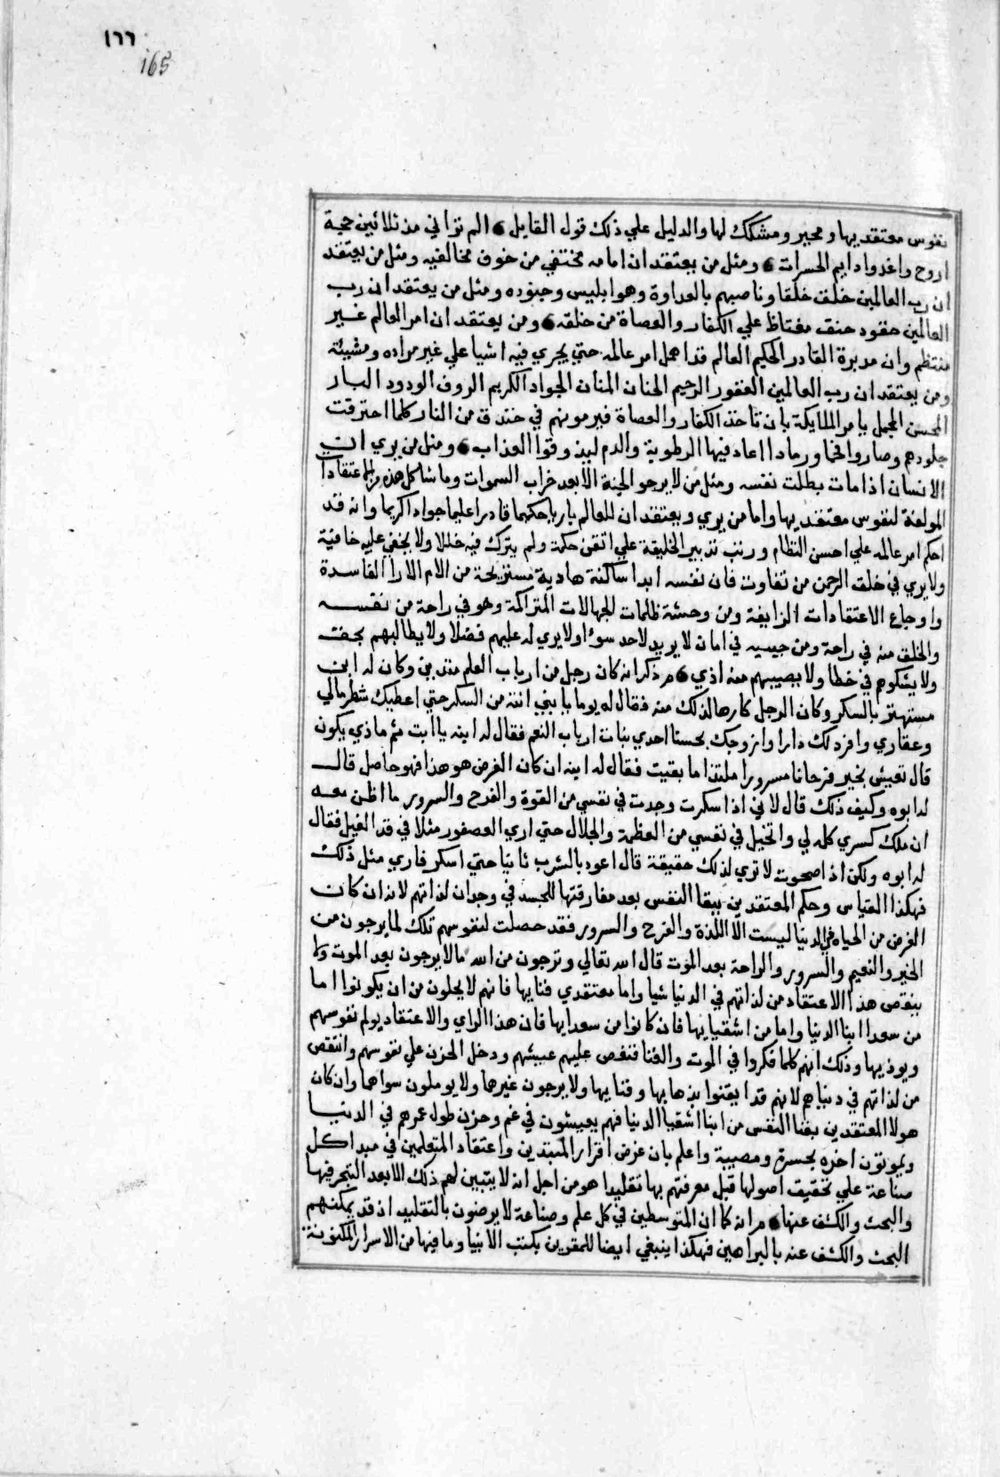 ١٦٦
165
نفوس معتقديها ومحير ومشكك لها والدليل علي ذلك قول القايل الم تواني مذ ثلاثين حجة
اروح واغدوا دايم الحسرات ومثل من يعتقد ان امامه مختفي من خوف مخالفيه ومثل من يعتقد
ان رب العالمين خلق خلقا وناصبهم بالعداوة وهو ابليس وجنوده ومثل من يعتقد ان رب
العالمين حقود حنق مغتاظ علي الكفار والعصاة من خلقه ومن يعتقد ان امر العالم غير
منتظم وان مدبرة القادر الحكيم العالم قد اهمل امر عالمه حتي يجري فيه اشيا علي غير مراده ومشيئة
ومن يعتقد ان رب العالمين الغفور الرحيم الحنان المنان الجواد الكريم الروف الودود البار
المحسن المجمل يامر الملايكة بان تاخذ الكفار والعصاة فيرمونهم في خندق من النار كلما احترقت
جلودهم وصاروا فحما ورمادا اعاد فيها الرطوبة والدم ليذوقوا العذاب ومثل من يري ان
الانسان اذا مات بطلت نفسه ومثل من لا يرجو الجنة الا بعد خراب السموات وما شاكل هذه الاعتقادا
المولمة لنفوس معتقديها واما من يري ويعتقد ان للعالم باريا حكيما قادرا عليما جوادا كريما وانه قد
احكم امر عالمه علي احسن النظام ورتب تدبير الخليقة علي اتقن حكمة ولم يترك فيه خللا ولا يخفي عليه خافية
ولا يري في خلق الرحمن من تفاوت فان نفسه ابدا ساكنة هادية مستريحة من الام الارا الفاسدة
واوجاع الاعتقادات الزايغة ومن وحشة ظلمات الجهالات المتراكمة وهو في راحة من نفسه
والخلق منه في راحة ومن جيسيه في امان لا يريد لاحد سوءا ولا يري له عليهم فضلا ولا يطالبهم بحق
ولا يشكوهم في خطا ولا يصيبهم منه اذي ثم ذكر انه كان رجل من ارباب العلم متدين وكان له ابن
مستهتر بالسكر وكان الرجل كارها لذلك منه فقال له يوما يا بني انته من السكر حتي اعطيك شطر مالي
وعقاري وافرد لك دارا وازوجك بحسنا احدي بنات ارباب النعم فقال له ابنه يا ابت ثم ماذي يكون
قال تعيش بخير فرحانا مسرورا ملتذا ما بقيت فقال له ابنه ان كان الغرض هو هذا فهو حاصل قال
له ابوه وكيف ذلك قال لاني اذا سكرت وجدت في نفسي من القوة والفرح والسرور ما اظن معه
ان ملك كسري كله لي واتخيل في نفسي من العظمة والجلال حتي اري العصفور مثلا في قد الفيل فقال
له ابوه ولكن اذا صحوت لا تري لذلك حقيقة قال اعود بالشرب ثانيا حتي اسكر فاري مثل ذلك
فهكذا القياس وحكم المعتقدين ببقا النفس بعد مفارقتها للجسد في وجدان لذاتهم لانه ان كان
الغرض من الحياه في الدنيا ليست الا اللذة والفرح والسرور فقد حصلت لنفوسهم تلك لما يرجون من
الخير والنعيم والسرور والراحة بعد الموت قال الله تعالي وترجون من الله ما لا يرجون بعد الموت ولا
ينقص هذا الاعتقاد من لذاتهم في الدنيا شيا واما معتقدي فنايها فانهم لا يخلون من ان يكونوا اما
من سعدا ابنا الدنيا واما من اشقيايها فان كانوا من سعدايها فان هذا الراي والاعتقاد يولم نفوسهم
ويوذيها وذلك انهم كلما فكروا في الموت والفنا فنغص عليهم عيشهم ودخل الحزن علي نفوسهم وانتقص
من لذاتهم في دنياهم لانهم قد ايقنوا بذهابها وفنايها ولا يرجون غيرها ولا يوملون سواها وان كان
هولا المعتقدين بفنا النفس من ابنا اشقيا الدنيا فهم يعيشون في غم وحزن طول عمرهم في الدنيا
ويموتون اخره بحسرة ومصيبة واعلم بان غرض اقرار المبتدين واعتقاد المتعلمين في مبدا كل
صناعة علي تحقيق اصولها قبل معرفتهم بها تقليدا هو من اجل انه لا يتبين لهم ذلك الا بعد التبحر فيها
والبحث والكشف عنها ثم انه كما ان المتوسطين في كل علم وصناعة لا يرضون بالتقليد اذ قد يمكنهم
البحث والكشف عنه بالبراهين فهكذا ينبغي ايضا للمقرين بكتب الانبيا وما فيها من الاسرار المكنونة